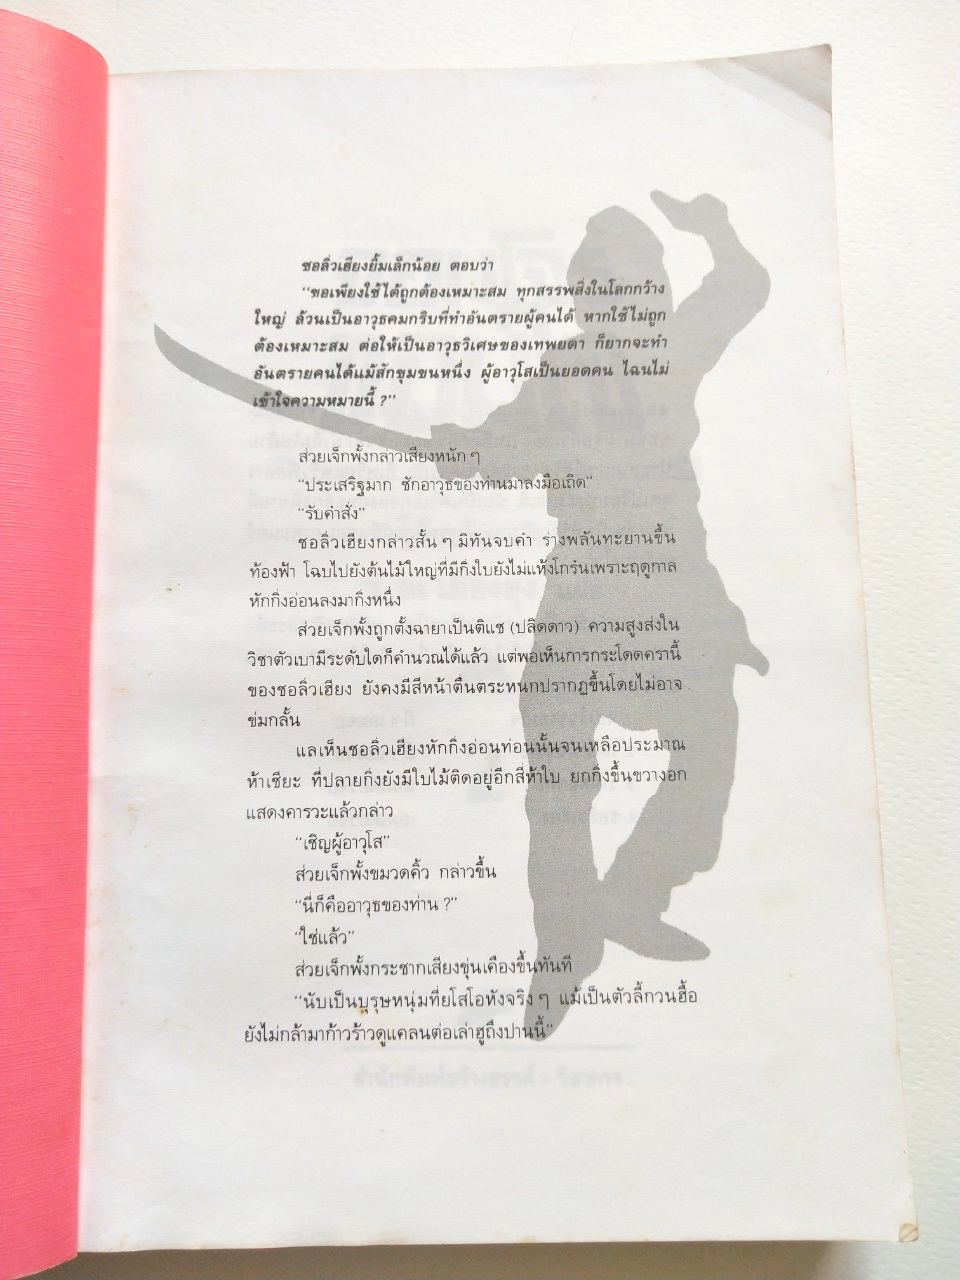 ชอลิ่วเฮียงยิ้มเล็กน้อย ตอบว่า
“ขอเพียงใช้ได้ถูกต้องเหมาะสม ทุกสรรพสิ่งในโลกกว้าง
ใหญ่ ล้วนเป็นอาวุธคมกริบที่ทำอันตรายผู้คนได้ หากใช้ไม่ถูก
ต้องเหมาะสม ต่อให้เป็นอาวุธวิเศษของเทพยดา ก็ยากจะทำ
อันตรายคนได้แม้สักขุมขนหนึ่ง ผู้อาวุโสเป็นยอดคน ไฉนไม่
เข้าใจความหมายนี้ ?”
ส่วยเจ็กพั้งกล่าวเสียงหนัก ๆ
“ประเสริฐมาก ชักอาวุธของท่านมาลงมือเถิด”
“รับคำสั่ง”
ชอลิ่วเฮียงกล่าวสั้น ๆ มิทันจบคำ ร่างพลันทะยานขึ้น
ท้องฟ้า โฉบไปยังต้นไม้ใหญ่ที่มีกิ่งใบยังไม่แห้งโกร๋นเพราะฤดูกาล
หักกิ่งอ่อนลงมากิ่งหนึ่ง
ส่วยเจ็กพั้งถูกตั้งฉายาเป็นติแซ (ปลิดดาว) ความสูงส่งใน
วิชาตัวเบามีระดับใดก็คำนวณได้แล้ว แต่พอเห็นการกระโดดครานี้
ของชอลิ่วเฮียง ยังคงมีสีหน้าตื่นตระหนกปรากฏขึ้นโดยไม่อาจ
ข่มกลั้น
แลเห็นชอลิ่วเฮียงหักกิ่งอ่อนท่อนนั้นจนเหลือประมาณ
ห้าเชียะ ที่ปลายกิ่งยังมีใบไม้ติดอยู่อีกสี่ห้าใบ ยกกิ่งขึ้นขวางอก
แสดงคารวะแล้วกล่าว
“เชิญผู้อาวุโส”
ส่วยเจ็กพั้งขมวดคิ้ว กล่าวขึ้น
“นี่ก็คืออาวุธของท่าน ?”
“ใช่แล้ว”
ส่วยเจ็กพั้งกระชากเสียงขุ่นเคืองขึ้นทันที
“นับเป็นบุรุษหนุ่มที่ยโสโอหังจริง ๆ แม้เป็นตัวลี้กวนฮื้อ
ยังไม่กล้ามาก้าวร้าวดูแคลนต่อเล่าฮูถึงปานนี้”